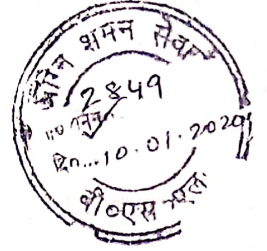 अग्नि शमन सेवा
2849
दि...10.01.2020
बी०एस०एल०